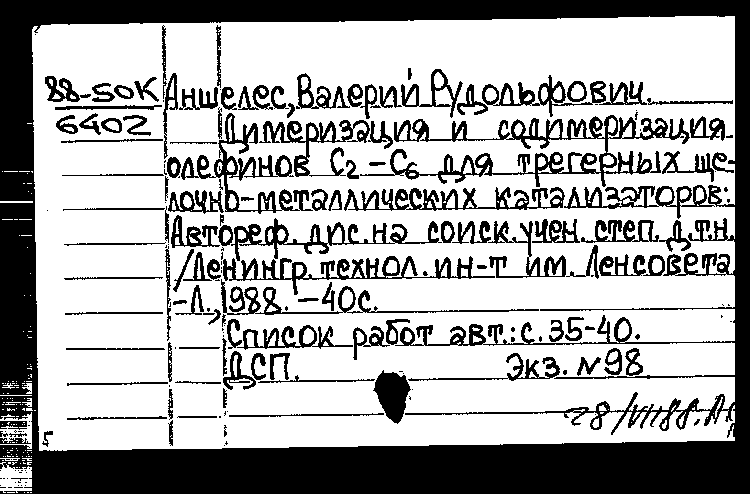 88-50К Аншелес, Валерий Рудольфович.
6402 Димеризация и содимеризация
олефинов C2-C6 для трегерных ще-
лочно-металлических катализаторов:
Автореф. дис. на соиск. учен. степ. д.т.н.
/Ленингр. технол. ин-т им. Ленсовета
-Л., 1988. -40с.
Список работ авт.: с. 35-40.
ДСП. Экз. №98
28/VII88.
5